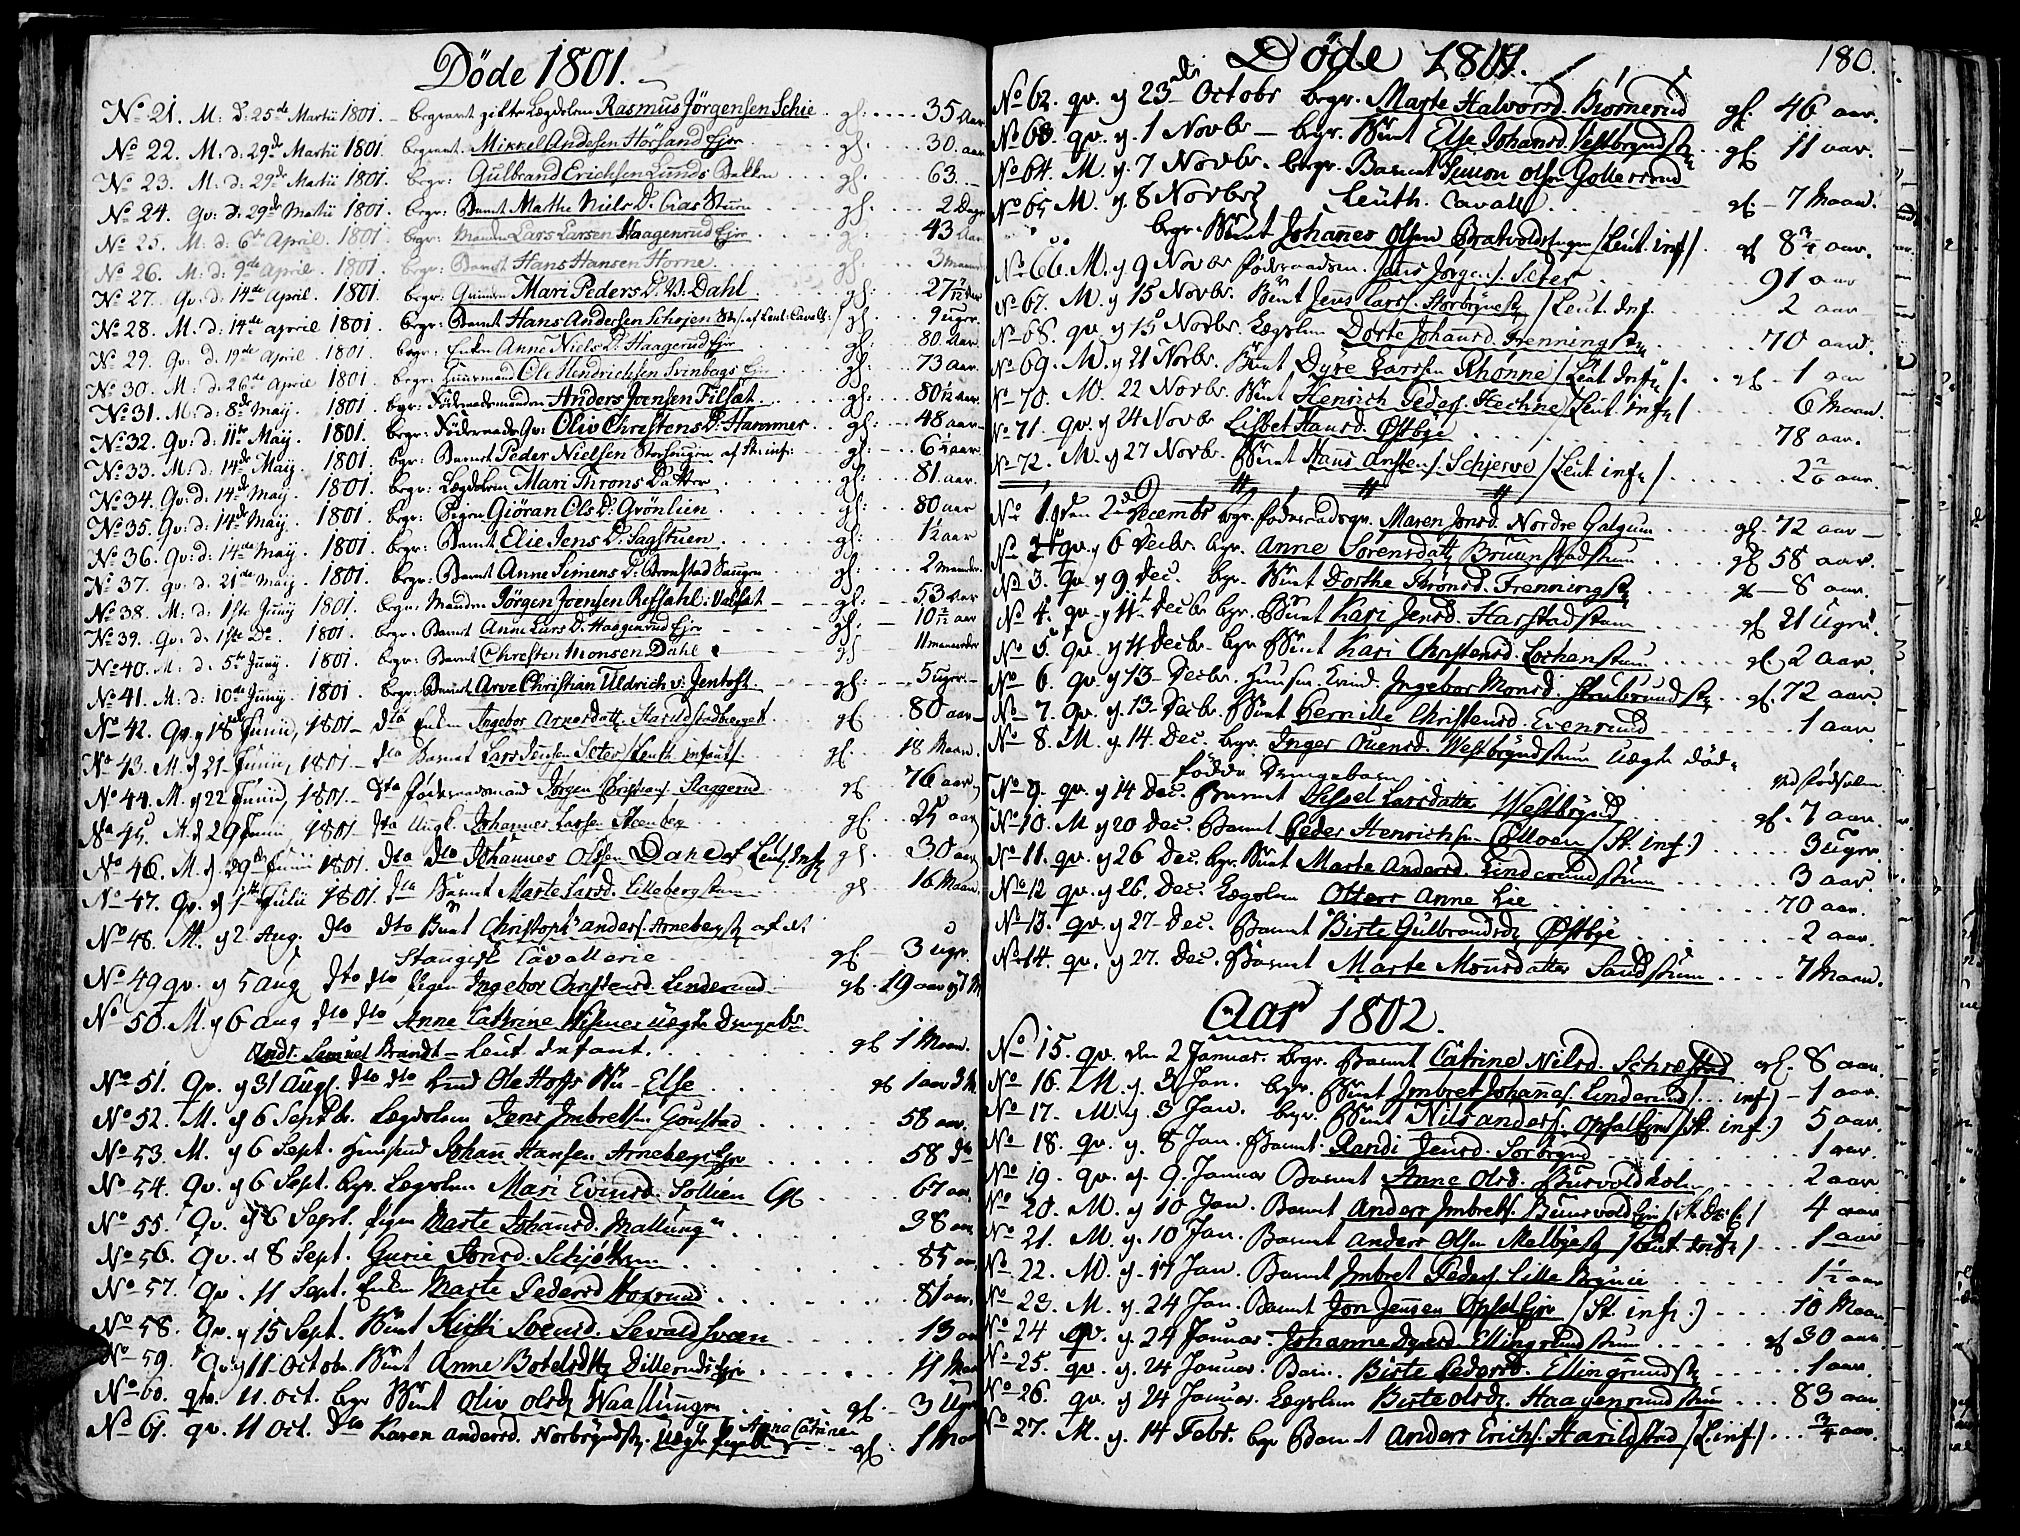 Döde 1801.
No 21. M: d: 25de Martii 1801. begravet gifte Lægdslem Rasmus Jörgensen Schie. gl: 35 aar
No 22. M: d: 29de Martii 1801. begravet Mikkel Andesen Hörsand Ejer gl: 30. aar
No 23. M: d: 29de Martii 1801. begr: Gulbrand Erichsen Lunds Bakken gl: 63.
No 24. Qv: d: 29de Martii 1801. begr: Barnet Mathe Niels D: gl: 2 Dage
No 25. M: d: 6te April. 1801. begr: Manden Lars Larsen Haagenrud Ejer g: 43 aar
No 26. M: d: 9de April. 1801. begr: Barnet Hans Hansen Horne. gl: 3 maaneder
No 27. Qv: d: 14de April. 1801. begr: Qvinden Mari Peders D: V: Dahl. gl: 27
No 28. M: d: 14de april 1801. begr: Barnet Hans Andersen Schojen af Leut: Cavall: gl: 9 uger.
No 29. Qv: d. 19de April. 1801. begr: Enken Anne Niels D: Haagerud Ejer gl: 80 aar.
No 30. M: d: 26de Aprie 1801. begr: Huusmand Ole Hendrichsen Svinbergs Ejer gl: 73 aar.
No 31. M: d: 8de May. 1801. begr: Föderaadsmanden Anders Joensen Tilset. gl: 80½ aar.
No 32. Qv: d: 11te May. 1801. begr: Föderaads Qv: Oliv Christens D: Hammer gl: 48 aar
No 33. M: d: 14de Maij. 1801. begr: Barnet Peder Nielsen af St: inf: gl: 6½ aar.
No 34. Qv: d: 14de May. 1801. begr: Lægdslem Mari Throns Datter gl: 81. aar.
No 35. Qv: d: 14de May. 1801. begr: Pigen Giöran Ols D: Grönlien gl: 80 aar
No 36. Qv: d: 14de May. 1801. begr: Barnet Elie Jens D: Sagstuen. gl: 1½ aar
No 37. qv: d: 21de Maij. 1801. begr: Barnet Anne Simens D: Bronstad Saugen gl: 2 maaneder.
No 38. M: d: 1ste Junij 1801. begr: Manden Jörgen Joensen Refsahl: Valset gl: 53 aar
No 39. Qv: d: 1ste Do 1801. begr: Barnet Anne Lars D: Haagenrud Ejer gl: 10 aar
No 40. M: d: 5te Junij. 1801. begr: Barnet Christen Monsen Dahl gl 11 maaneder
No 41. M: d: 10de Junij. 1801. begr: Barnet Arve Christian Uldrich v: Jentoft. gl: 5 uger.
No 42. Qv. y 18de Junii, 1801. dto Enken Ingebor Arnesdatt. Harildstadberget gl 80 aar
No 43. M. d 21 Junii, 1801 dto Barnet Lars Jensen Seter /Leuth. infant/. gl. 18 Maan.
No 44. M. y 22 Junii, 1801 dto föderaadsmand Jörgen Christians. Flaggerud gl. 76 aar
No 45. M. d 29 Junii, 1801 dto Ungk. Johannes Larsen gl. 25 aar
No 46. M. d 29de Junii 1801. dto dto Johannes Olssen Dahl af Leut. Infr gl. 30 aar
No 47. Qv. d 1ste Julii 1801. dto Barnet Marte Larsd. Lillebergstuen gl 16 Maan.
No 48. M. y 2 Aug. dto dto Barnet Christoph: anders. Arnebergst af det
Stangiske Cavallerie gl. 3 Ugr.
No 49 qv. y 5 aug dto dto pigen Ingebor Christensd. Linderud gl. 19 aar
No 50. M. y 6 aug dto dto Anne Catrine uegte Drengebr.
Andr. Samuel Brandt - Leut. Infant. gl 1 Maan.
No 51. Qv. y 31 Aug. dto dto Ole Hoffs Elfe gl 1 aar 3 M
No 52. M. y 6 Septbr. Lægdslem Jens Imbretsn Goustad 58 aar.
No 53. M. y 6 Sept. Huusmd Johan Hansen Arnebergejer 58 dto
No 54. Qv. y 6 Sept. begr. Lægdslem Mari Evensd. Sollien gl 67 aar
No 55. Qv. y 6 Sept. pigen Marte Johansd. Mallung 38 aar
No 56. Qv. d 8 Sept. Gurie Jonsd. 85 aar
No 57. Qv. 11 Sept. Enken Marte Pedersd 81 aar.
No 58. Qv. y 15 Sept. Barnet Kirsti Svensd. 13 aar
No 59. Qv y 11 Octobr. Barnet Anne Botelsdtr Dillerudsejer 11 Maan
No 60. qv. 11. Oct. begr Barnet Oliv Olsdr gl. 3 Ugr
No 61. qv. 11 Oct. dto Karen Andersd. Norbryndst. Uegte Anne Catrine gl. 1 Maan

Döde 1801.
180.
No 62. qv. y 23de Octobr begr. Marte Halvorsd. Biörnerud gl. 46 aar.
No 63. qv. y. 1 Novbr begr. Barnet Else Johansd. Vestbryndst gl. 11 aar.
No 64. M. y. 7 Novbr. begr. Barnet Simon Olsn Gollerud
Leuth. Cavall gl. 7 Maan.
No 65 M. y. 8 Novbr
begr. Barnet Johannes Olsen Bratvoldhagen /Leut. inf/ gl 8¾ aar.
No 66. M. y 9 Novbr föderaadsm. Jens Jörgens. Seter 91 aar
No 67. M. y 15 Novbr. Barnet Jens Lars. /Leut. Inf. 2 aar
No 68. qv. y 15 Novbr. Lægslem Dorte Johansd. Frenningst 70 aar.
No 69. M. y 21 Novbr. Barnet Dyre Larsen Rhönne /Leut Infr/. gl 1 aar
No 70. M. 22 Novbr. Barnet Henrich Peders. /Leut infr/ 6 Maan.
No 71. qv. y 24 Novbr Lisbet Hansd. Østbye 78 aar.
No 72. M. y 27 Novbr. Barnet Hans Ansten/. Schjerve /Leut infr/. 2 aar.
No 1. den 2den Decembr begr. föderaadsqv. Maren Jonsd. Nordre Galgum gl. 72 aar
No 2. qv. y 6 Decbr. begr. Anne Sörensdatt. Bruunstadstuen gl 58 aar.
No 3. qv y 9 Dec. begr. Barnet Dorthe Thronsd. Frenningst gl 8 aar.
No 4. qv y 11t Decbr begr. Barnet Kari Jensd. Harstadstuen gl 21 Ugr.
No 5. qv. y 11 Decbr. begr Barnet Kari Christensd. Lochenstuen gl. 2 aar
No 6. qv. y 13 Decbr. Ingebor Monsd. gl. 72 aar
No 7. qv. y 13 Decbr Barnet Pernille Christensd. Evenrud 1 aar
No 8. M. y 14. Dec. begr. Inger Ouensd. Vestbryndstuen Uegte död-
födde Drengebarn ved födselen
No 9. qv. y 14 Dec. Barnet Sissel Larsdatter Westbrynd gl. 7 aar.
No 10. M y 20 Dec. Barnet Peder Henrichsn (St. inf.) 3 ugr
No 11. qv. y 26 Dec. begr. Barnet Marte Andersd. Linderudstuen 3 aar.
No 12 qv. y 26. Dec. Lægslem Anne Lie 70 aar.
No 13. qv. y 27. Dec. Barnet Birte Gulbrandsdr Østbye 2 aar.
No 14. qv. y 27. Dec. Barnet Marte Monsdatter Sandstuen 7 Maan.
Aar 1802.
No 15. qv. den 2 Januar. begr. Barnet Catrine Nilsd. Schrestad gl. 8 aar.
No 16. M. y 3 Jan. begr. Barnet Imbret Johannes. Linderud inf) 1 aar.
No 17. M. y 3 Jan. begr. Barnet Nils anders. Opsalejer (St. inf.) 5 aar.
No 18. qv. y. 8 Jan. Barnet Randi Jensd. Sorbrynd 1 aar.
No 19. qv. y. 9. Januar Barnet Anne Olsd. 2 aar
No 20. M. y 10 Jan. Barnet Anders Imbrets. 4 aar
No 21. M. y. 10 Jan. Barnet Anders Olsn Melbyest /Leut. Infr/ 1 aar
No 22. M. y. 17 Jan. Barnet Imbret Peders. Lille 1½ aar
No 23. M. y. 24 Jan. Barnet Jon Jensen Opsalejer (St. infr.) 10 Maan
No 24 qv. y. 24 Januar Johanne Ellingrudstuen gl 30 aar
No 25. qv. y. 24 Januar. Barn. Birte Pedersd. Ellingrundst 1 aar.
No 26. qv. y 24 Januar Lægslem Birte Olsdr Haagenrudstuen 83 aar.
No 27. M. y. 14 Febr. begr Barnet Anders Erichs. Harildstad /L.inf/ ¾ aar.